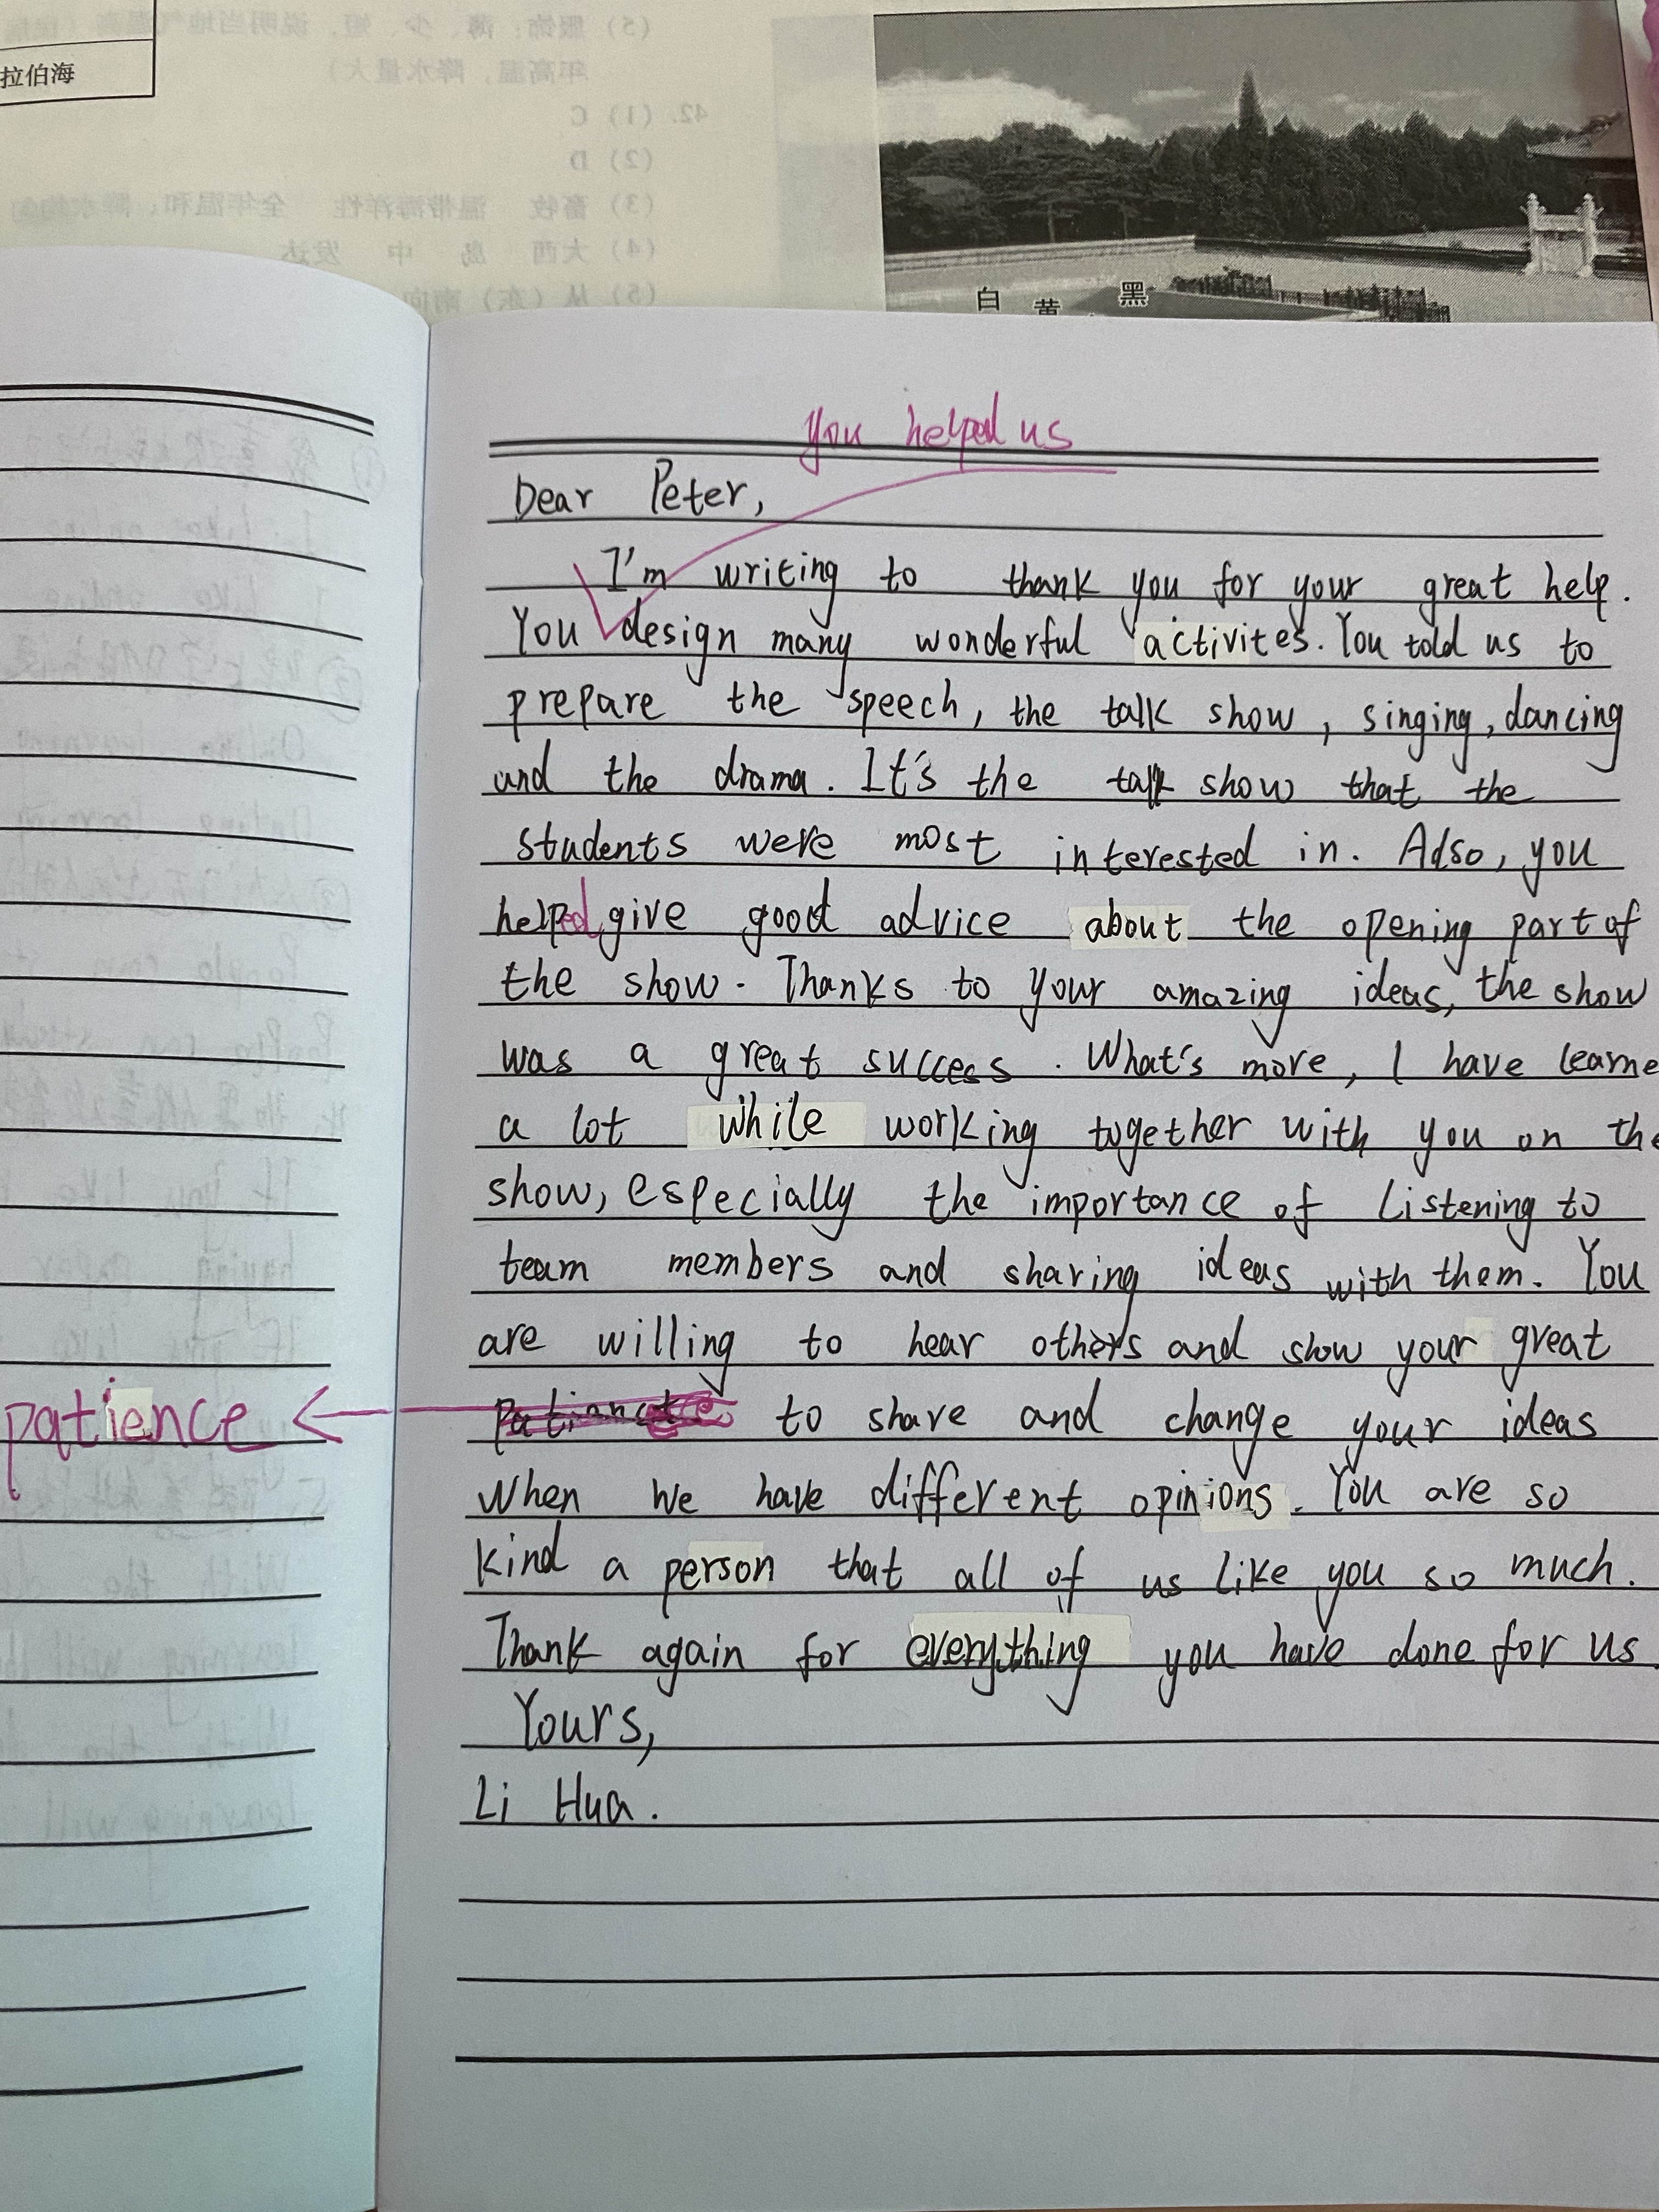 拉伯海
(5) 服饰：薄、少、短，说明当地气温高
年高温，降水量大)
42. (1) C
(2) D
(3) 畜牧 温带海洋性 全年温和，降水均匀
(4) 大西 岛 中 发达
白 黄 黑
you helped us
Dear Peter,
I'm writing to thank you for your great help.
You design many wonderful activites. You told us to
prepare the speech, the talk show, singing, dancing
and the drama. It's the talk show that the
students were most interested in. Also, you
helped give good advice about the opening part of
the show. Thanks to your amazing ideas, the show
was a great success. What's more, I have learne
a lot while working together with you on the
show, especially the importance of listening to
team members and sharing ideas with them. You
are willing to hear others and show your great
patience
to share and change your ideas
when we have different opinions. You are so
kind a person that all of us like you so much.
Thank again for everything you have done for us.
Yours,
Li Hua.